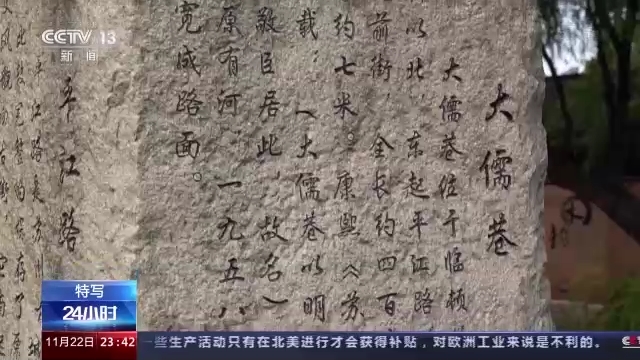 CCTV 13
新闻
大儒巷
大儒巷位于临顿
以北，东起平江路
前街，全长约四百
约七米。康熙《苏
载：（大儒巷以明
敬臣居此，故名）
原有河，一九五八
宽成路面。
平江路
江路是苏州
特写
24小时
11月22日 23:42
一些生产活动只有在北美进行才会获得补贴，对欧洲工业来说是不利的。